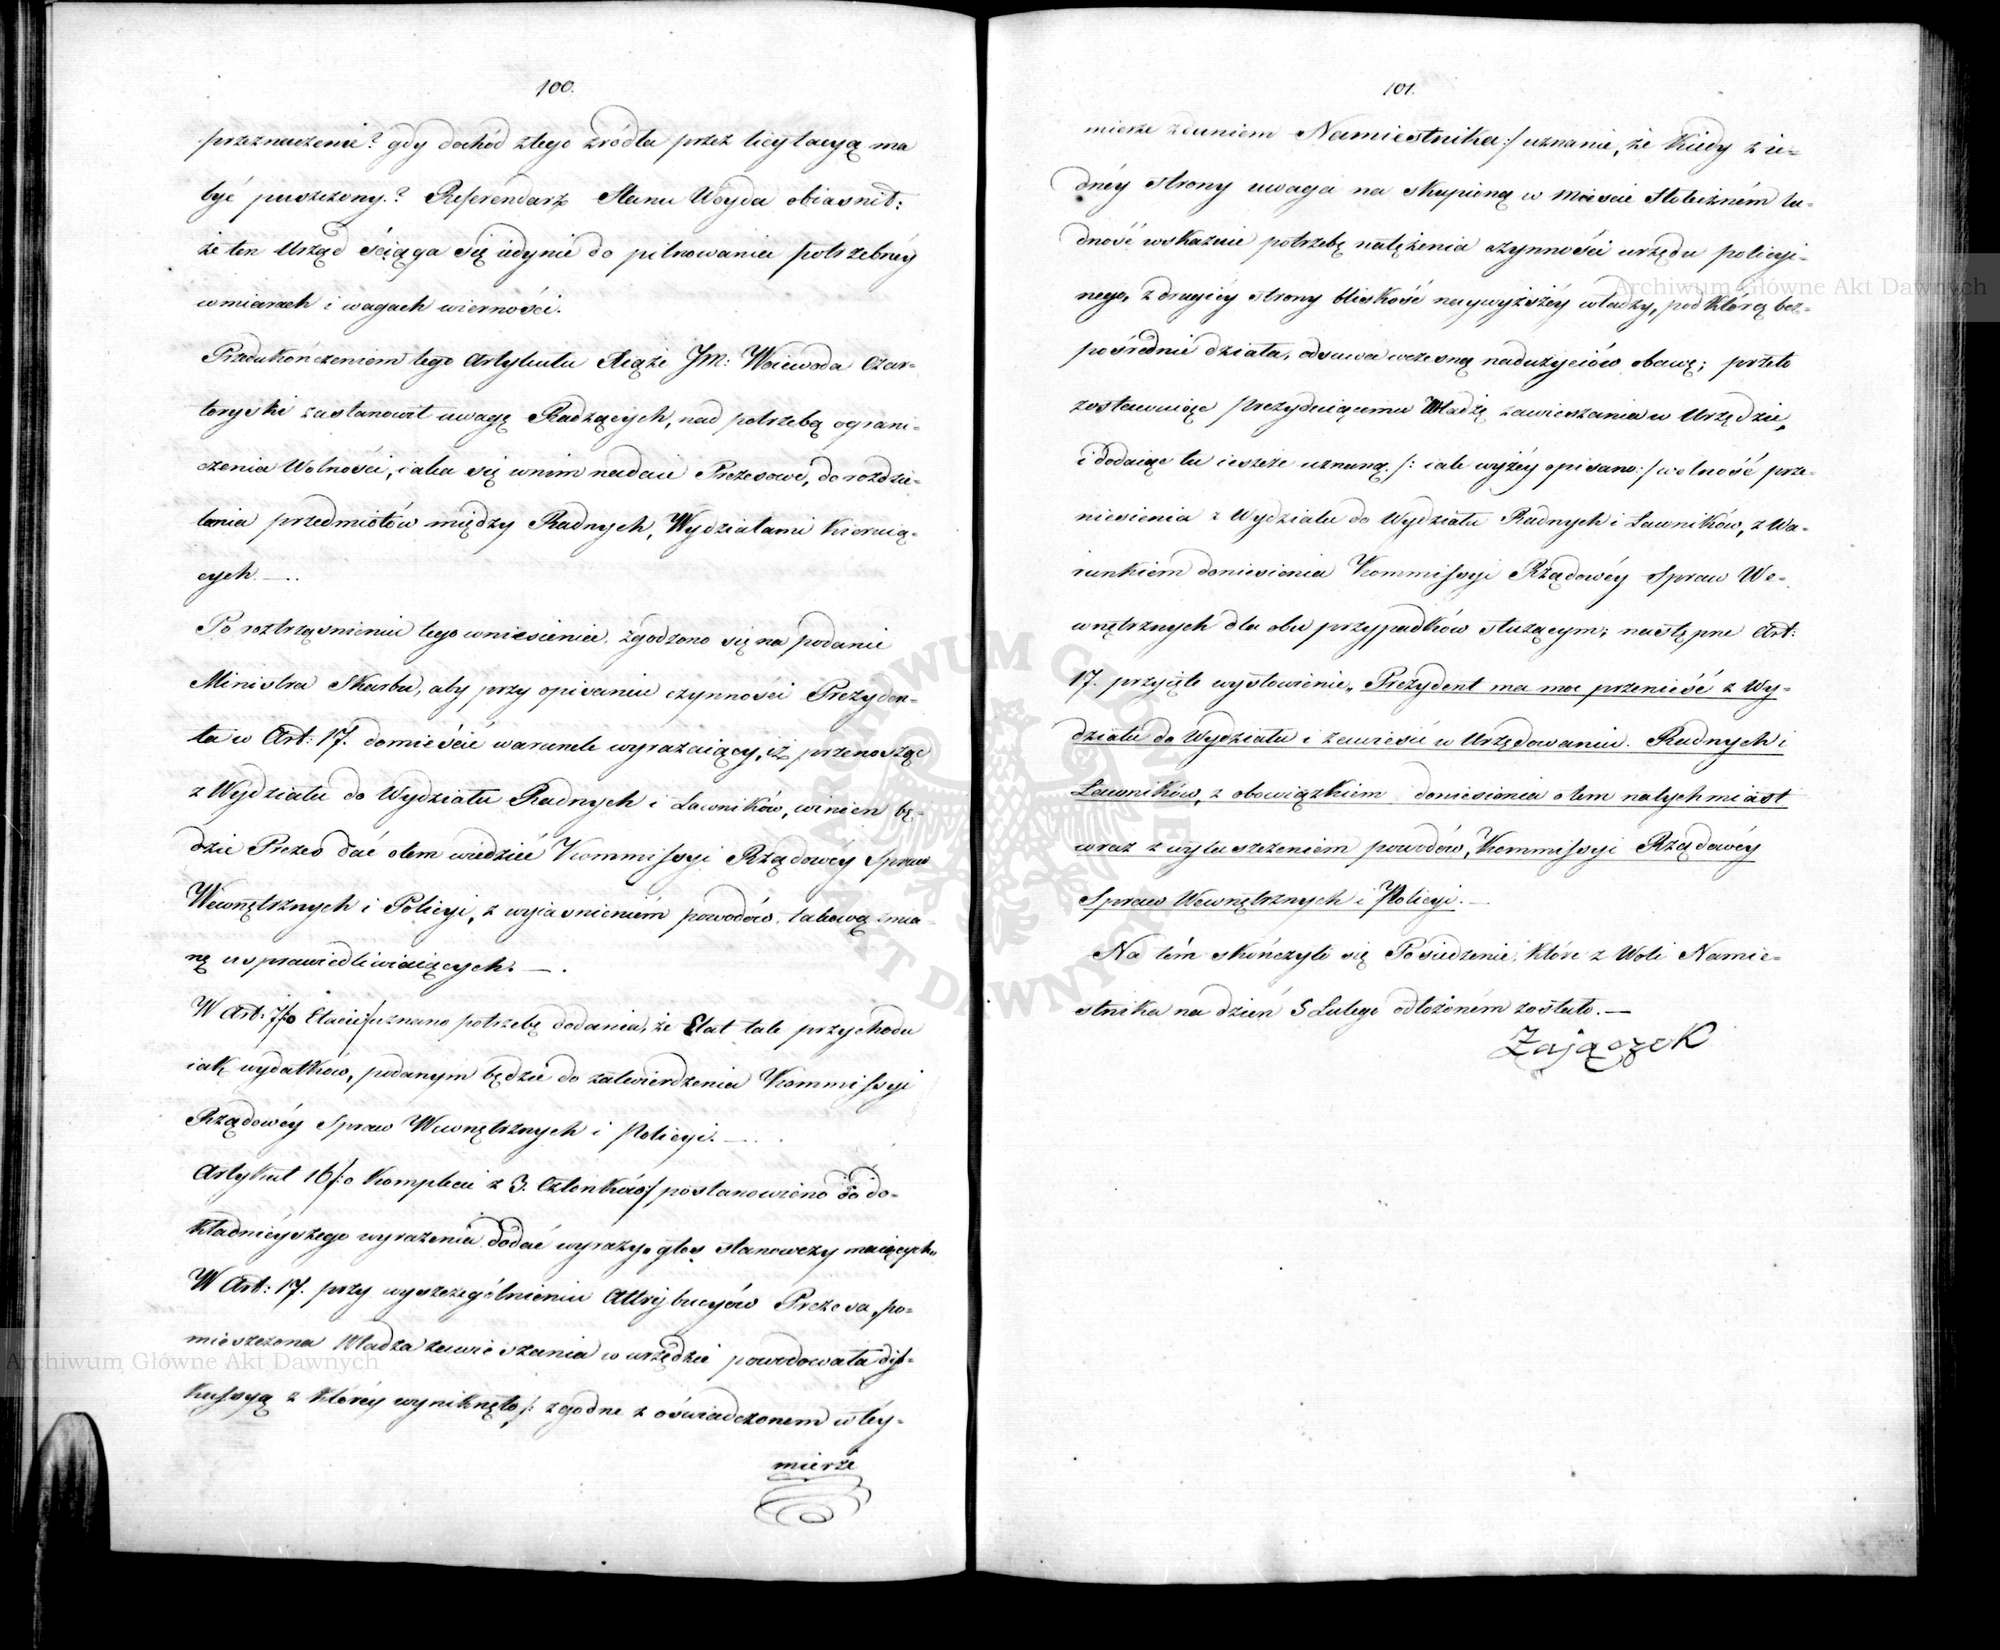 100.
przeznaczenie? gdy dochód z tego źródła przez licytacyą ma
być puszczony? Referendarz Stanu Woyda obiasnił:
że ten Urząd ściąga się iedynie do pilnowania potrzebnéy
w miarach i wagach wierności.
Przed ukończeniem tego Artykułu Xiąże JM: Woiewoda Czar-
toryski zastanowił uwagę Radzących, nad potrzebą ograni-
czenia Wolności, iaka się w nim nadaie Prezesowi, do rozdzie-
lania przedmiotów między Radnych, Wydziałami Kieruią-
cych. —
Po roztrząśnieniu tego wniesienia, zgodzono się na podanie
Ministra Skarbu, aby przy opisaniu czynności Prezyden-
ta w Art: 17. domieścić warunek wyrażaiący, iż przenosząc
z Wydziału do Wydziału Radnych i Ławników, winien bę-
dzie Prezes dać o tem wiedzieć Kommissyi Rządowéy Spraw
Wewnętrznych i Policyi, z wyiaśnieniem powodów, takową zmia-
nę usprawiedliwiaiących. —
W Art: 7/:o Etacie/ uznano potrzebę dodania, że Etat tak przychodu
iak wydatków, podanym będzie do zatwierdzenia Kommissyi
Rządowéy Spraw Wewnętrznych i Policyi. —
Artykuł 16/:o Komplecie z 3. Członków/ postanowiono do do-
kładnieyszego wyrażenia dodać wyrazy „głos stanowczy maiących„
W Art: 17. przy wyszczególnieniu Attrybucyów Prezesa, po-
mieszczona Władza zawieszania w urzędzie powodowała dys-
kussyą z któréy wyniknęło /: zgodne z oświadczonem w téy-
mierze
101.
mierze zdaniem Namiestnika:/ uznanie, że Kiedy z ie-
dnéy strony uwaga na skupioną w Mieście Stołeczném lu-
dność wskazuie potrzebę natężenia czynności urzędu policyi-
nego, z drugiéy strony bliskość naywyższéy władzy, pod którą bez-
pośrednie działa, odsuwa wczesną nadużyciów obawę; przeto
zostawuiąc Prezyduiącemu Władzę zawieszania w Urzędzie,
i dodaiąc tu ieszcze uznaną /: iak wyżéy opisano:/ wolność prze-
niesienia z Wydziału do Wydziału Radnych i Ławników, z Wa-
runkiem doniesienia Kommissyi Rządowéy Spraw We-
wnętrznych dla obu przypadków służącym; następne Art:
17. przyięte wysłowienie „Prezydent ma moc przenieść z Wy-
działu do Wydziału i zawiesić w Urzędowaniu Radnych i
Ławników, z obowiązkiem doniesienia o tem natychmiast
wraz z wyłuszczeniem powodów, Kommissyi Rządowéy
Spraw Wewnętrznych i Policyi. —
Na tém skończyło się Posiedzenie, które z Woli Namie-
stnika na dzień 5 Lutego odłożoném zostało. —
Zajączek
Archiwum Główne Akt Dawnych
Archiwum Główne Akt Dawnych
ARCHIWUM GŁÓWNE AKT DAWNYCH